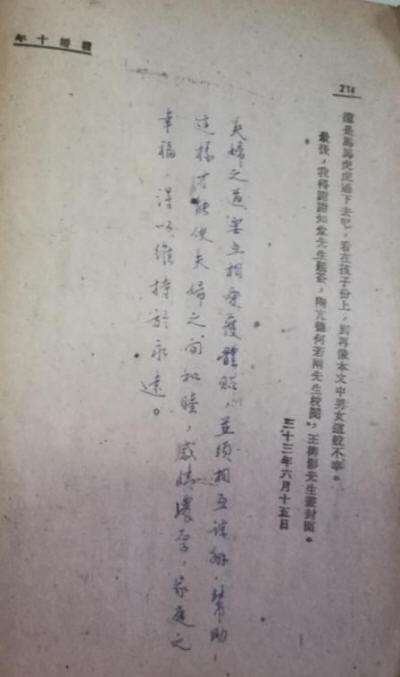 結婚十年
還是馬馬虎虎過下去吧，看在孩子份上，別再像本文中男女這般不幸。
最後，我得謝謝知堂先生題簽，陶亢德何若兩先生校閱，王柳影先生畫封面。
三十三年六月十五日
夫婦之道要互相愛護體貼，並須相互諒解，幫助，
這樣才能使夫婦之间和睦，感情濃厚，家庭之
幸福，得以維持於永遠。